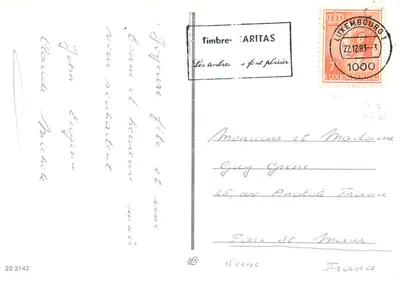 Joyeuse fête et une
bonne et heureuse année
vous souhaitent
John Eugène
Claude Michèle
22 3142
Timbres CARITAS
Les timbres font plaisir
LUXEMBOURG 1
22.12.83 - 3
1000
Monsieur et Madame
Guy
25, av. Anatole France
St Maur
Seine
France